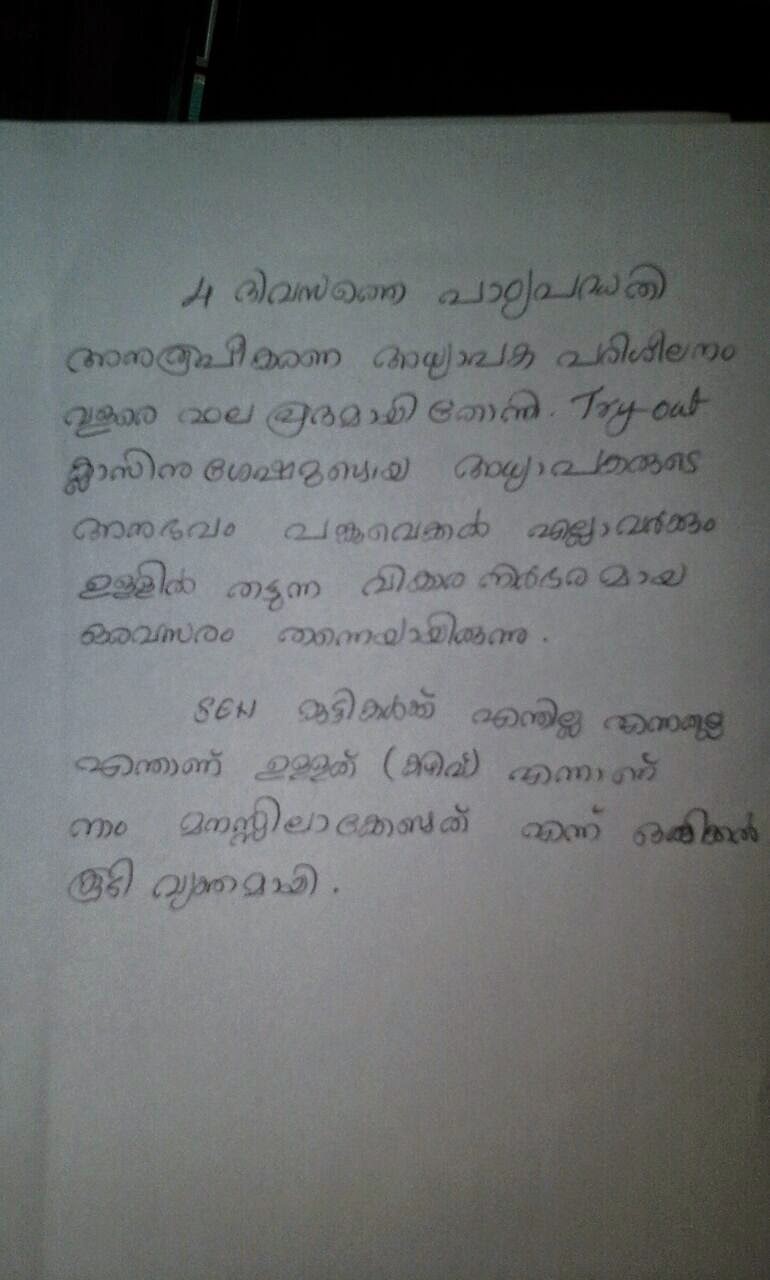 4 ദിവസത്തെ പാഠ്യപദ്ധതി
അനുരൂപീകരണ അധ്യാപക പരിശീലനം
വളരെ ഫലപ്രദമായി തോന്നി. Try-out
ക്ലാസിനു ശേഷമുണ്ടായ അധ്യാപകരുടെ
അനുഭവം പങ്കുവെക്കൽ എല്ലാവർക്കും
ഉള്ളിൽ തട്ടുന്ന വികാര നിർഭരമായ
ഒരവസരം തന്നെയായിരുന്നു.
SEN കുട്ടികൾക്ക് എന്തില്ല എന്നതല്ല
എന്താണ് ഉള്ളത് (കഴിവ്) എന്നാണ്
നാം മനസ്സിലാക്കേണ്ടത് എന്ന് ഒരിക്കൽ
കൂടി വ്യക്തമായി.